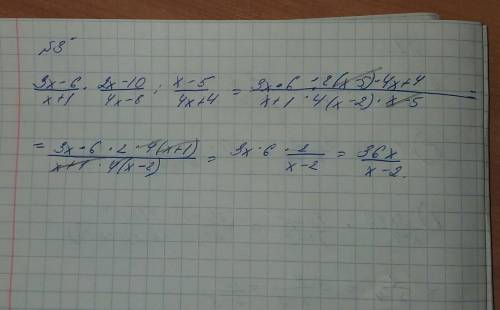 №3
3x-6/x+1 · 2x-10/4x-8 : x-5/4x+4 = 3x·6 · 2(x-5)·4x+4/x+1 · 4(x-2) · x-5
= 3x·6·2·4(x+1)/x+1 · 4(x-2) = 3x·6 · 2/x-2 = 36x/x-2.